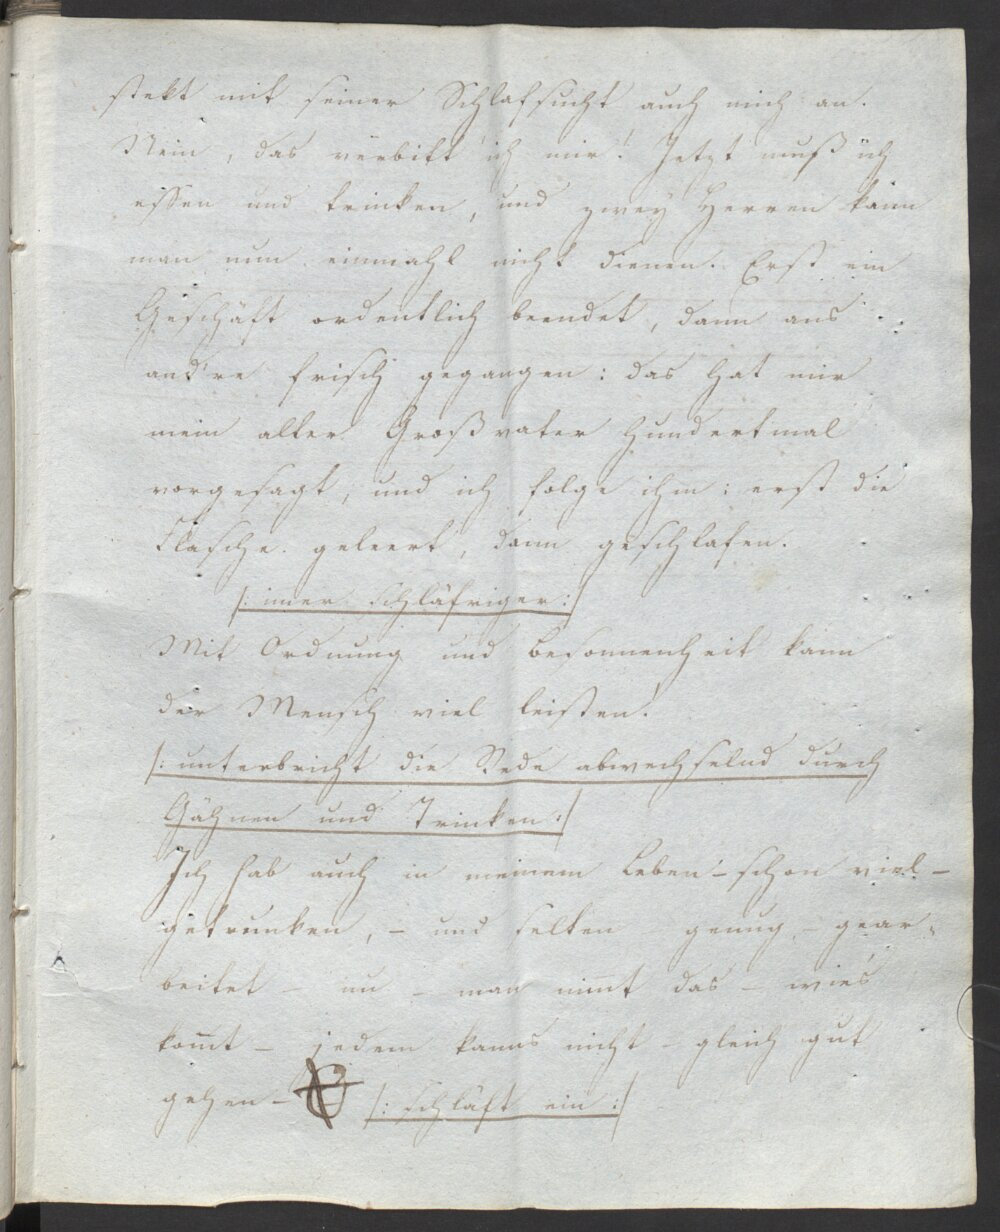 stekt mit seiner Schlafsucht auch mich an.
Nein, das verbitt' ich mir! Jetzt muß ich
essen und trinken, und zwey Herren kann
man nun einmahl nicht dienen. Erst ein
Geschäft ordentlich beendet, dann ans
and're frisch gegangen: das hat mir
mein alter Großvater hundertmal
vorgesagt, und ich folge ihm: erst die
Flasche geleert, dann geschlafen.
/: im̅er schläfriger :/
Mit Ordnung und Besonnenheit kann
der Mensch viel leisten!
/: unterbricht die Rede abwechselnd durch
Gähnen und Trinken :/
Ich hab auch in meinem Leben – schon viel –
getrunken, – und selten – genug – gear=
beitet – nu – man nim̅t das – wie's
kom̅t – jedem kanns nicht – gleich gut
gehen – /: schläft ein :/